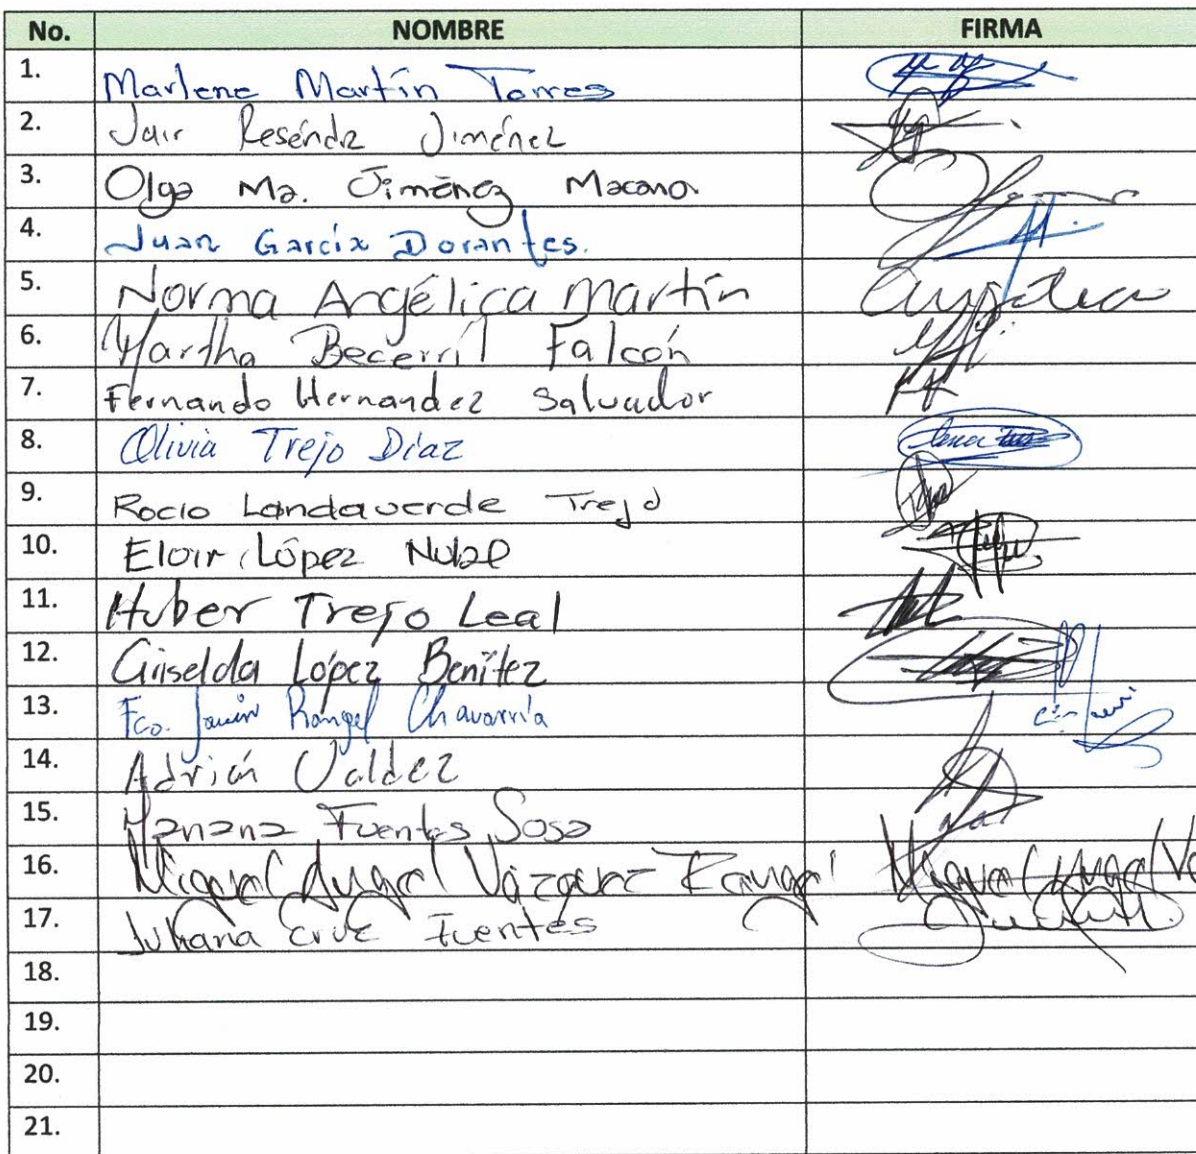 No. NOMBRE FIRMA
1. Marlene Martín Torres
2. Jair Reséndiz Jiménez
3. Olga Ma. Jiménez
4. Juan García Dorantes.
5. Norma Angélica Martín Angélica
6. Martha Becerril Falcón
7. Fernando Hernandez Salvador
8. Olivia Trejo Díaz
9. Rocio Landaverde Trejo
10. Eloir López
11. Huber Trejo Leal
12. Griselda López Benítez
13. Fco. Javier Rangel Chavarría
14. Adrián Valdez
15. Fuentes Sosa
16. Miguel Angel Vázquez Rangel Miguel Angel
17. Juliana Cruz Fuentes
18.
19.
20.
21.